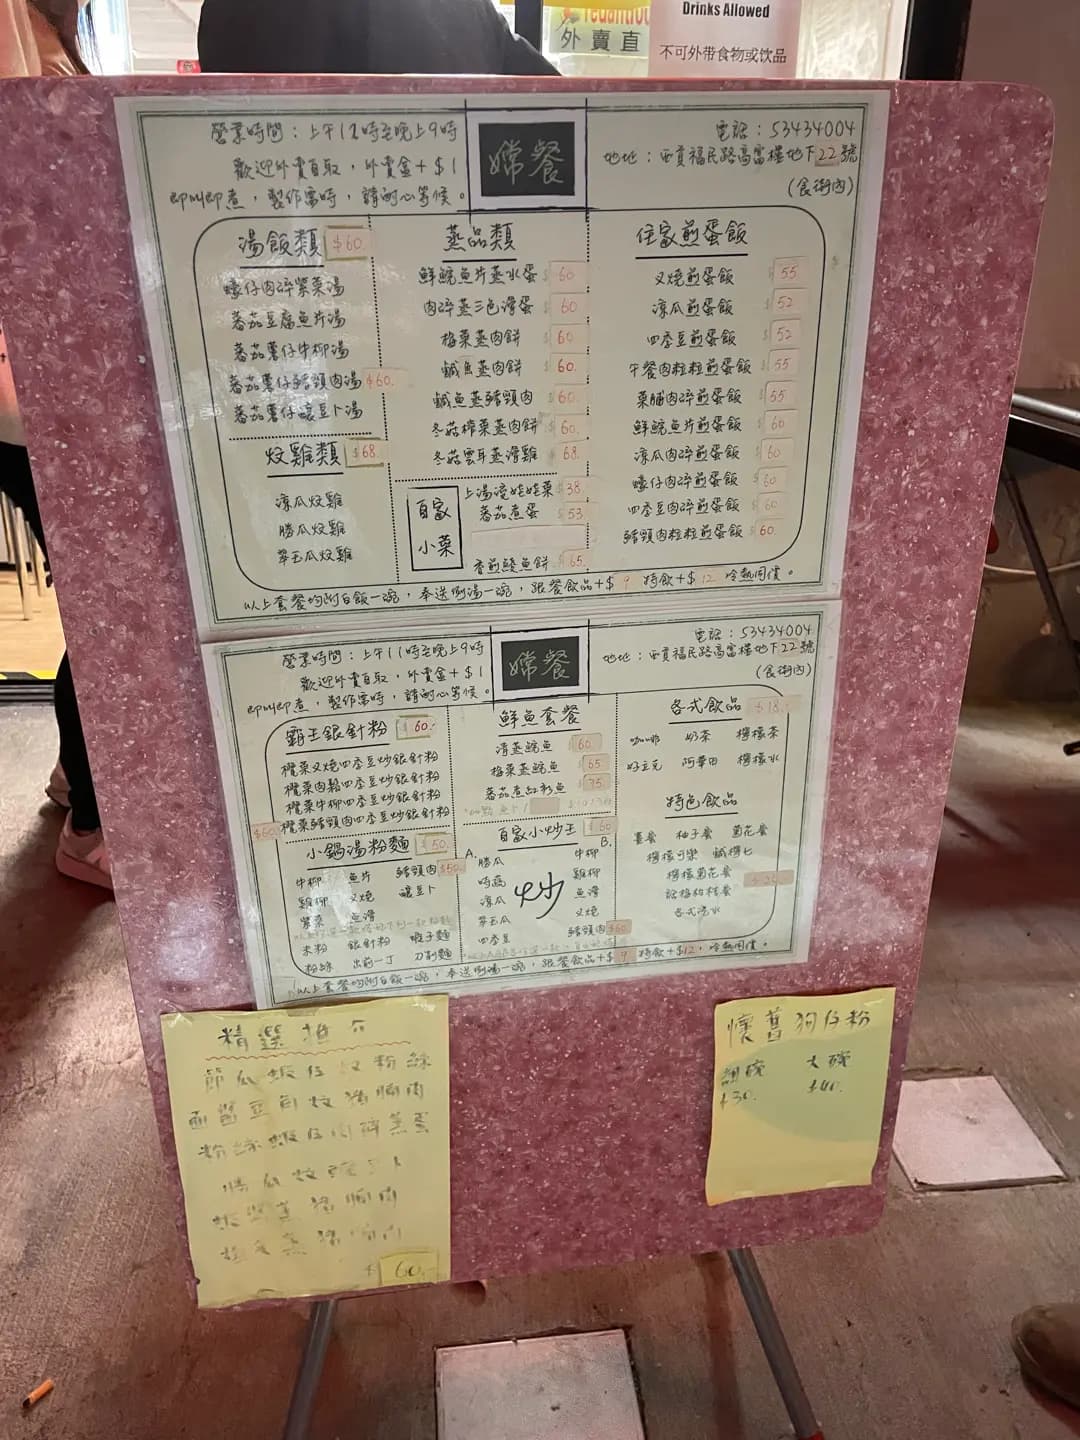 外賣直
Drinks Allowed
不可外帶食物或饮品
營業時間：上午12時至晚上9時
歡迎外賣自取，外賣盒+$1
即叫即煮，製作需時，請耐心等候。
嫦餐
電話：53434004
地址：西貢福民路高富樓地下22號
(食街內)
湯飯類 $60.
蠔仔肉碎紫菜湯
蕃茄豆腐魚片湯
蕃茄薯仔牛柳湯
蕃茄薯仔豬頸肉湯 $60.
蕃茄薯仔釀豆卜湯
炆雞類 $68.
涼瓜炆雞
勝瓜炆雞
翠玉瓜炆雞
蒸品類
鮮鯇魚片蒸水蛋 $60
肉碎蒸三色滑蛋 $60
梅菜蒸肉餅 $60
鹹魚蒸肉餅 $60.
鹹魚蒸豬頸肉 $60.
冬菇榨菜蒸肉餅 $60.
冬菇雲耳蒸滑雞 68.
百家小菜
上湯浸娃娃菜 $38
蕃茄煮蛋 $53
香煎鯪魚餅 $65.
住家煎蛋飯
叉燒煎蛋飯 $55
涼瓜煎蛋飯 $52
四季豆煎蛋飯 $52
午餐肉粒粒煎蛋飯 $55
菜脯肉碎煎蛋飯 $55
鮮鯇魚片煎蛋飯 $60
涼瓜肉碎煎蛋飯 $60
蠔仔肉碎煎蛋飯 $60
四季豆肉碎煎蛋飯 $60
豬頸肉粒粒煎蛋飯 $60.
以上套餐均附白飯一碗，奉送例湯一碗，跟餐飲品+$9 特飲+$12 冷熱同價。
營業時間：上午11時至晚上9時
歡迎外賣自取，外賣盒+$1
即叫即煮，製作需時，請耐心等候。
嫦餐
電話：53434004
地址：西貢福民路高富樓地下22號
(食街內)
霸王銀針粉 $60.
欖菜叉燒四季豆炒銀針粉
欖菜肉鬆四季豆炒銀針粉
欖菜牛柳四季豆炒銀針粉
$60. 欖菜豬頸肉四季豆炒銀針粉
小鍋湯粉麵 $50.
牛柳 魚片 豬頸肉 $50.
雞柳 叉燒 釀豆卜
紫菜 魚滑
米粉 銀針粉 蝦子麵
粉絲 出前一丁 刀削麵
鮮魚套餐
清蒸鯇魚 $60.
梅菜蒸鯇魚 $65
蕃茄煮紅衫魚 $75
百家小炒王 $60
A. B.
勝瓜 牛柳
時蔬 雞柳
涼瓜 炒 魚滑
翠玉瓜 叉燒
四季豆 豬頸肉 $60.
各式飲品 $18.
咖啡 奶茶 檸檬茶
好立克 阿華田 檸檬水
特色飲品
薑蜜 柚子蜜 菊花蜜
檸檬可樂 鹹檸七
檸檬菊花蜜
各式汽水
以上套餐均附白飯一碗，奉送例湯一碗，跟餐飲品+$9 特飲+$12，冷熱同價。
精選推介
節瓜蝦仔炆粉絲
面醬豆角炆豬腩肉
粉絲蝦仔肉碎蒸蛋
勝瓜炆釀豆卜
蝦醬蒸豬腩肉
$60.
懷舊狗仔粉
細碗 大碗
$30. $40.